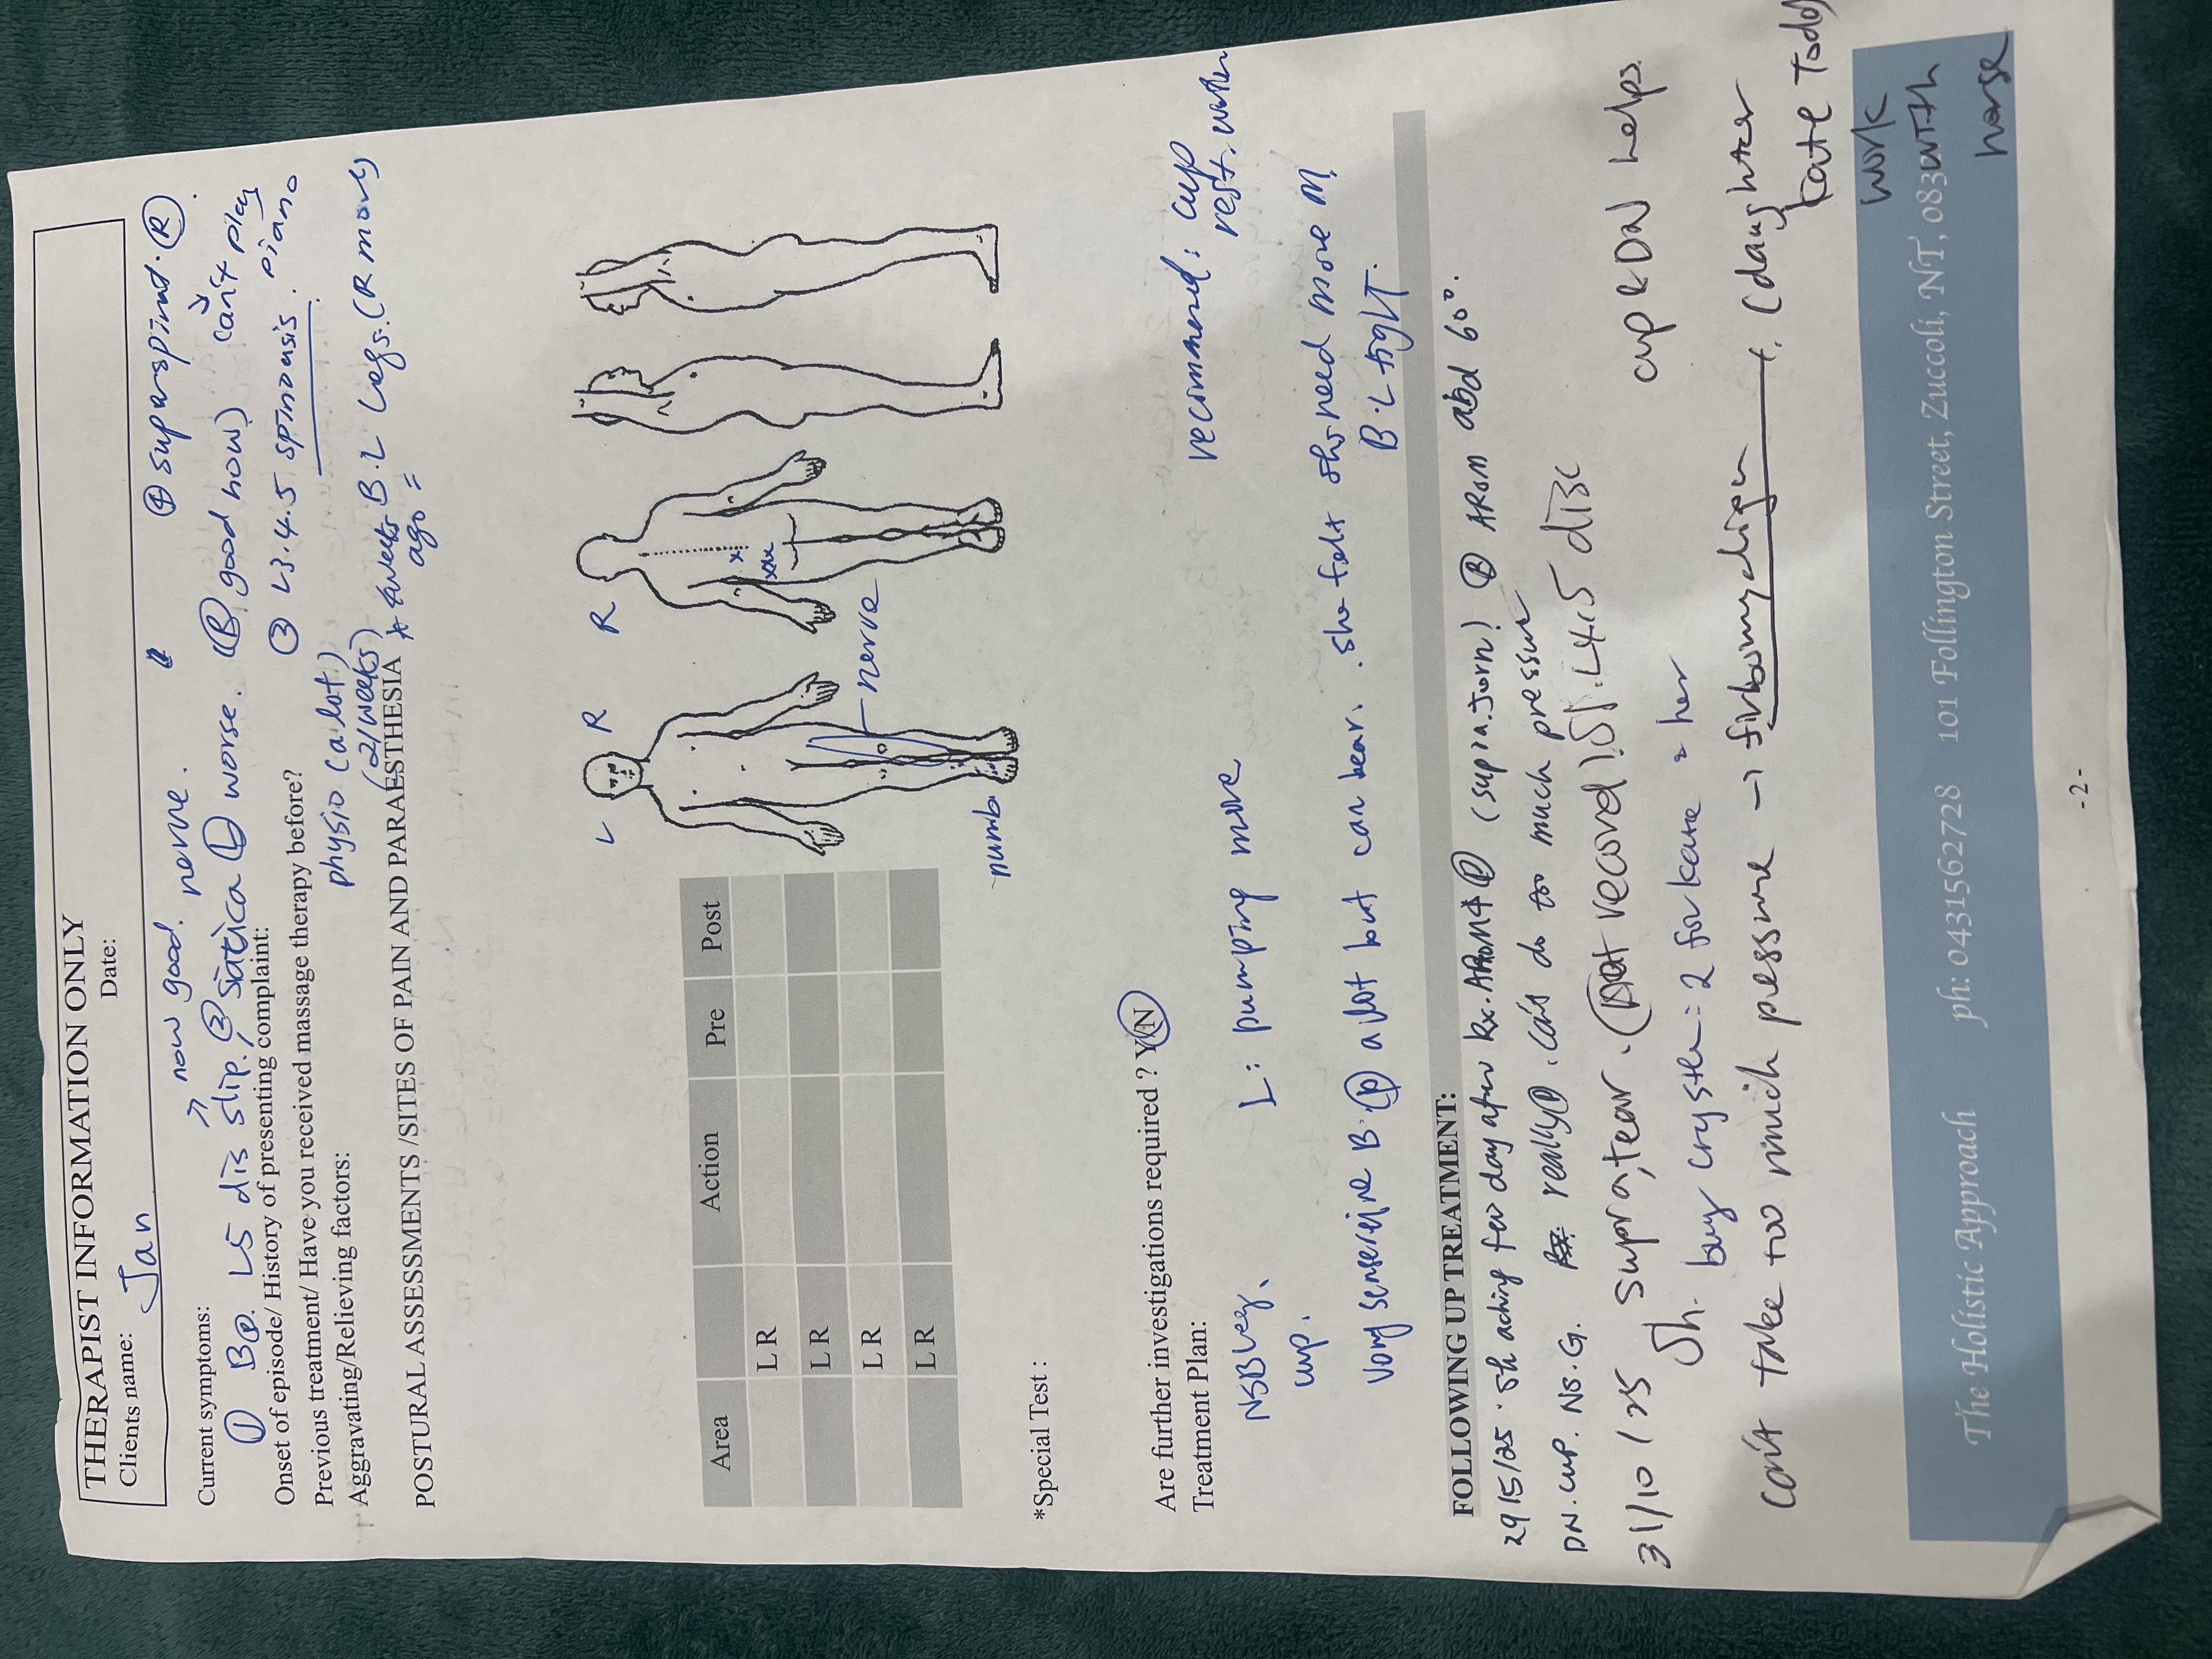 THERAPIST INFORMATION ONLY
Clients name: Jan Date:
now good. nerve.
Current symptoms: ④ supraspinat. Ⓡ
① BⓅ. L5 dis slip. ② Siatica Ⓛ worse. (B, good now) can't play piano
Onset of episode/ History of presenting complaint: ③ L3.4.5 spinosis.
Previous treatment/ Have you received massage therapy before?
physio (a lot)
(2/weeks)
Aggravating/Relieving factors: weeks ago B.L Legs. (R more)
POSTURAL ASSESSMENTS /SITES OF PAIN AND PARAESTHESIA
L R R
Area Action Pre Post
L R
L R
L R
L R
nerve
numb
xxx
*Special Test :
Are further investigations required ? Y/N
Treatment Plan: recommend: cup
rest. water
L: pumping more
cup.
very B. Ⓟ a lot but can bear. she felt need more M.
B.L tight.
FOLLOWING UP TREATMENT:
29/5/25. sh aching few day after Rx. AROM Ⓟ (supra. torn) AROM abd 60°.
DN. cup. NS. G. really Ⓟ. can't do too much pressure
31/10/25 supra, tear. (not record) L4.5 disc cup & DN helps.
Sh. buy = 2 for kate 2 her
can't take too much pressure → (daughter
kate Today
work with
horse
The Holistic Approach ph: 0431562728 101 Follington Street, Zuccoli, NT, 083
-2-